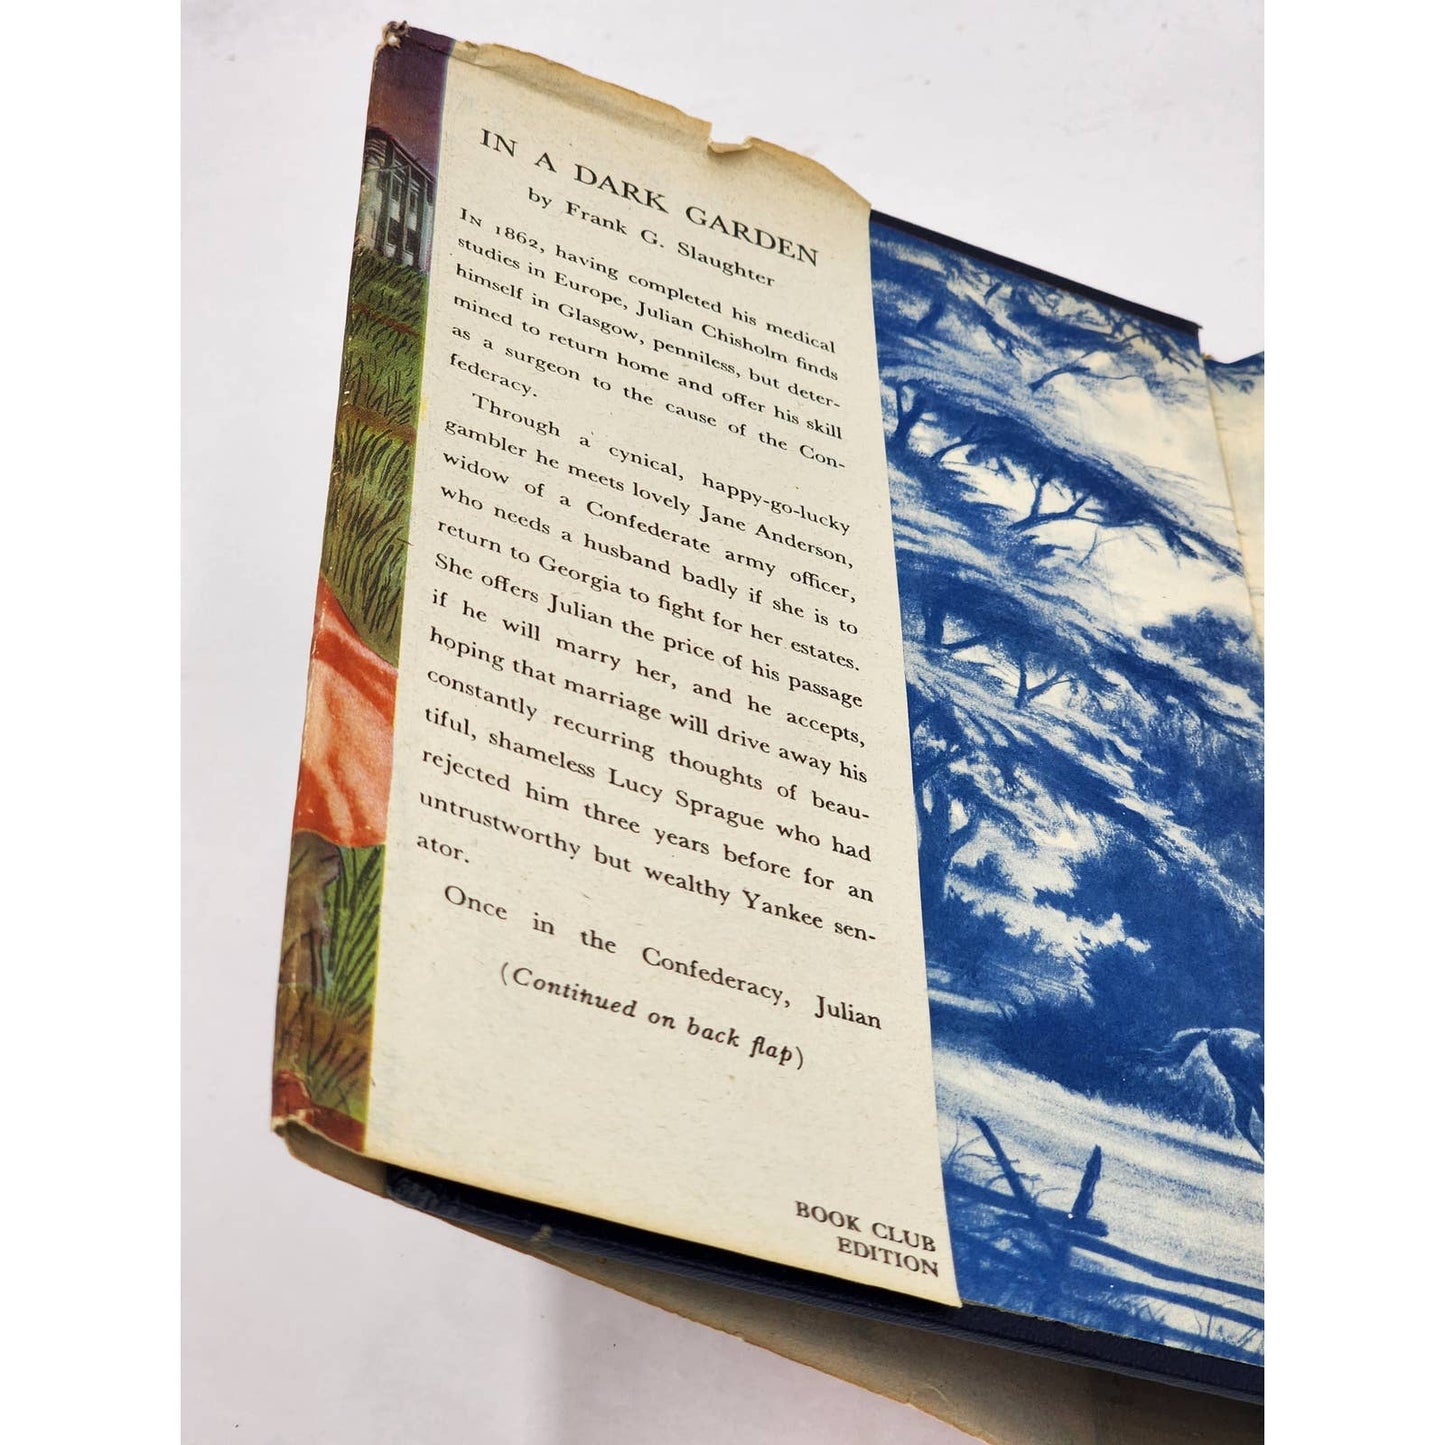 IN A DARK GARDEN
by Frank G. Slaughter
IN 1862, having completed his medical
studies in Europe, Julian Chisholm finds
himself in Glasgow, penniless, but deter-
mined to return home and offer his skill
as a surgeon to the cause of the Con-
federacy.
Through a cynical, happy-go-lucky
gambler he meets lovely Jane Anderson,
widow of a Confederate army officer,
who needs a husband badly if she is to
return to Georgia to fight for her estates.
She offers Julian the price of his passage
if he will marry her, and he accepts,
hoping that marriage will drive away his
constantly recurring thoughts of beau-
tiful, shameless Lucy Sprague who had
rejected him three years before for an
untrustworthy but wealthy Yankee sen-
ator.
Once in the Confederacy, Julian
(Continued on back flap)
BOOK CLUB
EDITION